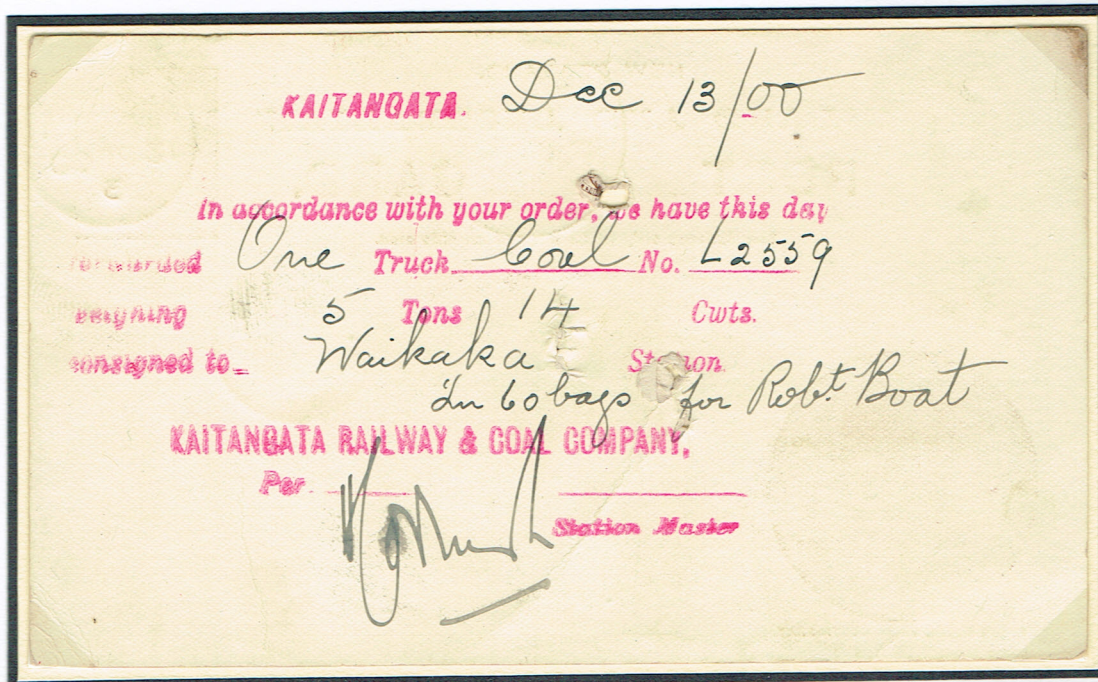 KAITANGATA. Dec 13/00
In accordance with your order, we have this day
forwarded One Truck Coal No. L2559
weighing 5 Tons 14 Cwts.
consigned to Waikaka Station
In 60 bags for Robt. Boat
KAITANGATA RAILWAY & COAL COMPANY,
Per
Station Master